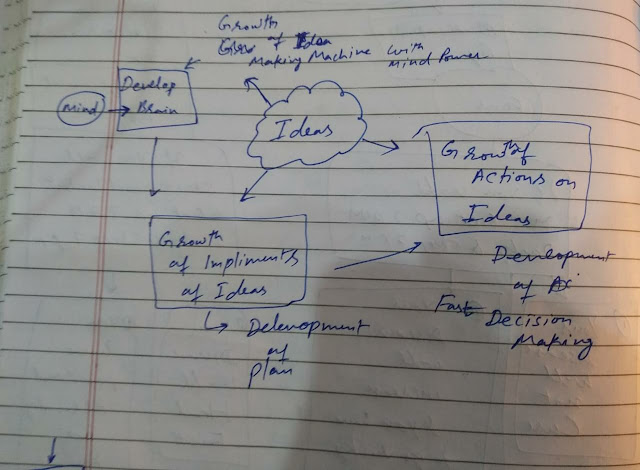 Growth
Grow of Idea
Making Machine with
Mind Power
Develop
Brain
Mind
Ideas
Growth of
Actions on
Ideas
Growth
of Impliments
of Ideas
Development
of
Plan
Development
of
Fast Decision
Making